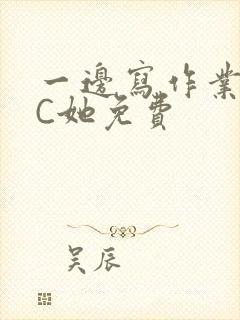 一邊寫作業
C她免費
吴辰